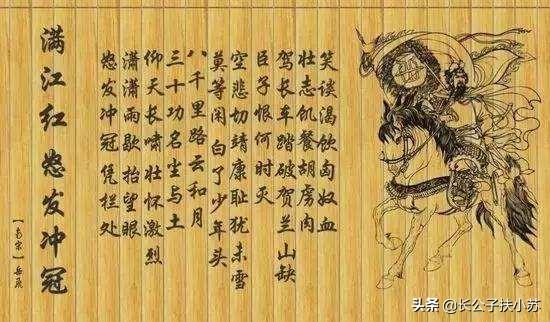 满江红 怒发冲冠
【南宋】岳飞
怒发冲冠凭栏处
潇潇雨歇抬望眼
仰天长啸壮怀激烈
三十功名尘与土
八千里路云和月
莫等闲白了少年头
空悲切靖康耻犹未雪
臣子恨何时灭
驾长车踏破贺兰山缺
壮志饥餐胡虏肉
笑谈渴饮匈奴血
头条 @长公子扶小苏